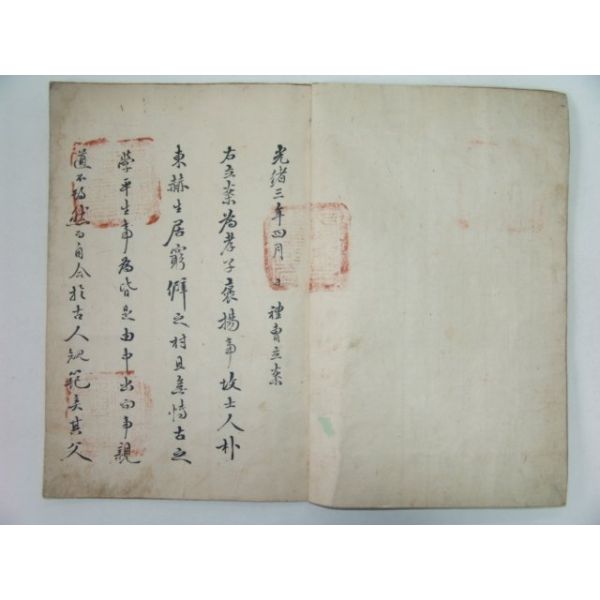 光緖三年四月 日 禮曹立案
右立案爲孝子褒揚事故士人朴
東赫生居窮僻之村且無博古之
學平生事爲皆是由中出而事親
道不勉然而自合於古人規範矣其父